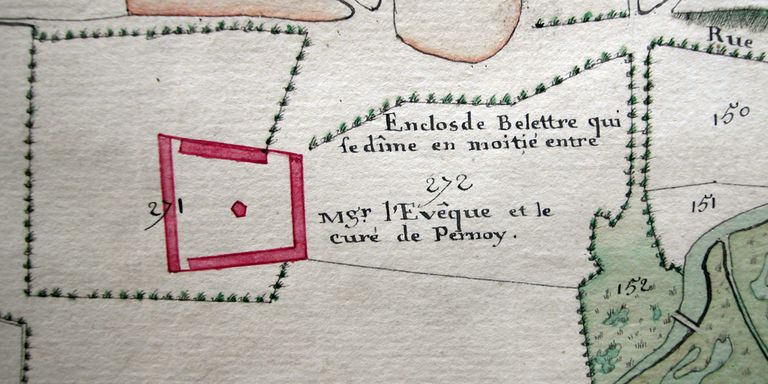 Rue
150
Enclos de Belettre qui
se dîme en moitié entre
272
151
271
Mgr. l'Evêque et le
curé de Pernoy.
152